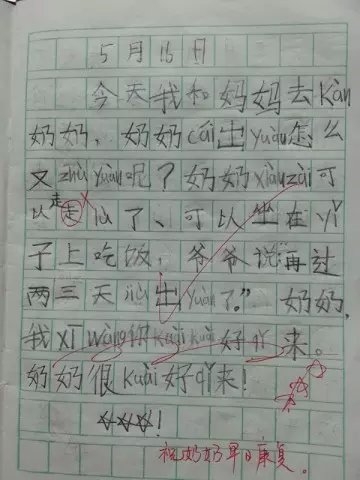 5月16日
今天我和妈妈去kàn
奶奶，奶奶cái出yuàn怎么
又zhùyuàn呢？奶奶xiànzài可
以走lù了、可以坐在yǐ
子上吃饭，爷爷说再过
两三天jiù出yuàn了。”奶奶，
我xīwàng你kuàikuài好qǐ来。
奶奶很kuài好qǐ来！
☆☆☆！
祝奶奶早日康复。